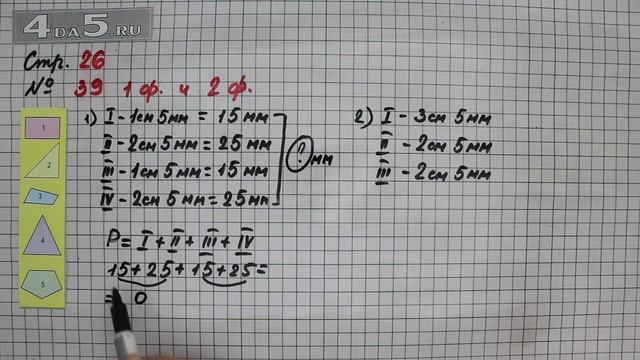 4DA5.RU
Стр. 26
№ 39 1 ф. и 2 ф.
1) I - 1см 5мм = 15 мм
II - 2см 5мм = 25 мм
III - 1см 5мм = 15 мм
IV - 2см 5мм = 25 мм
? мм
P = I + II + III + IV
15 + 25 + 15 + 25 =
= 0
2) I - 3см 5мм
II - 2см 5мм
III - 2см 5мм
1
2
3
4
5